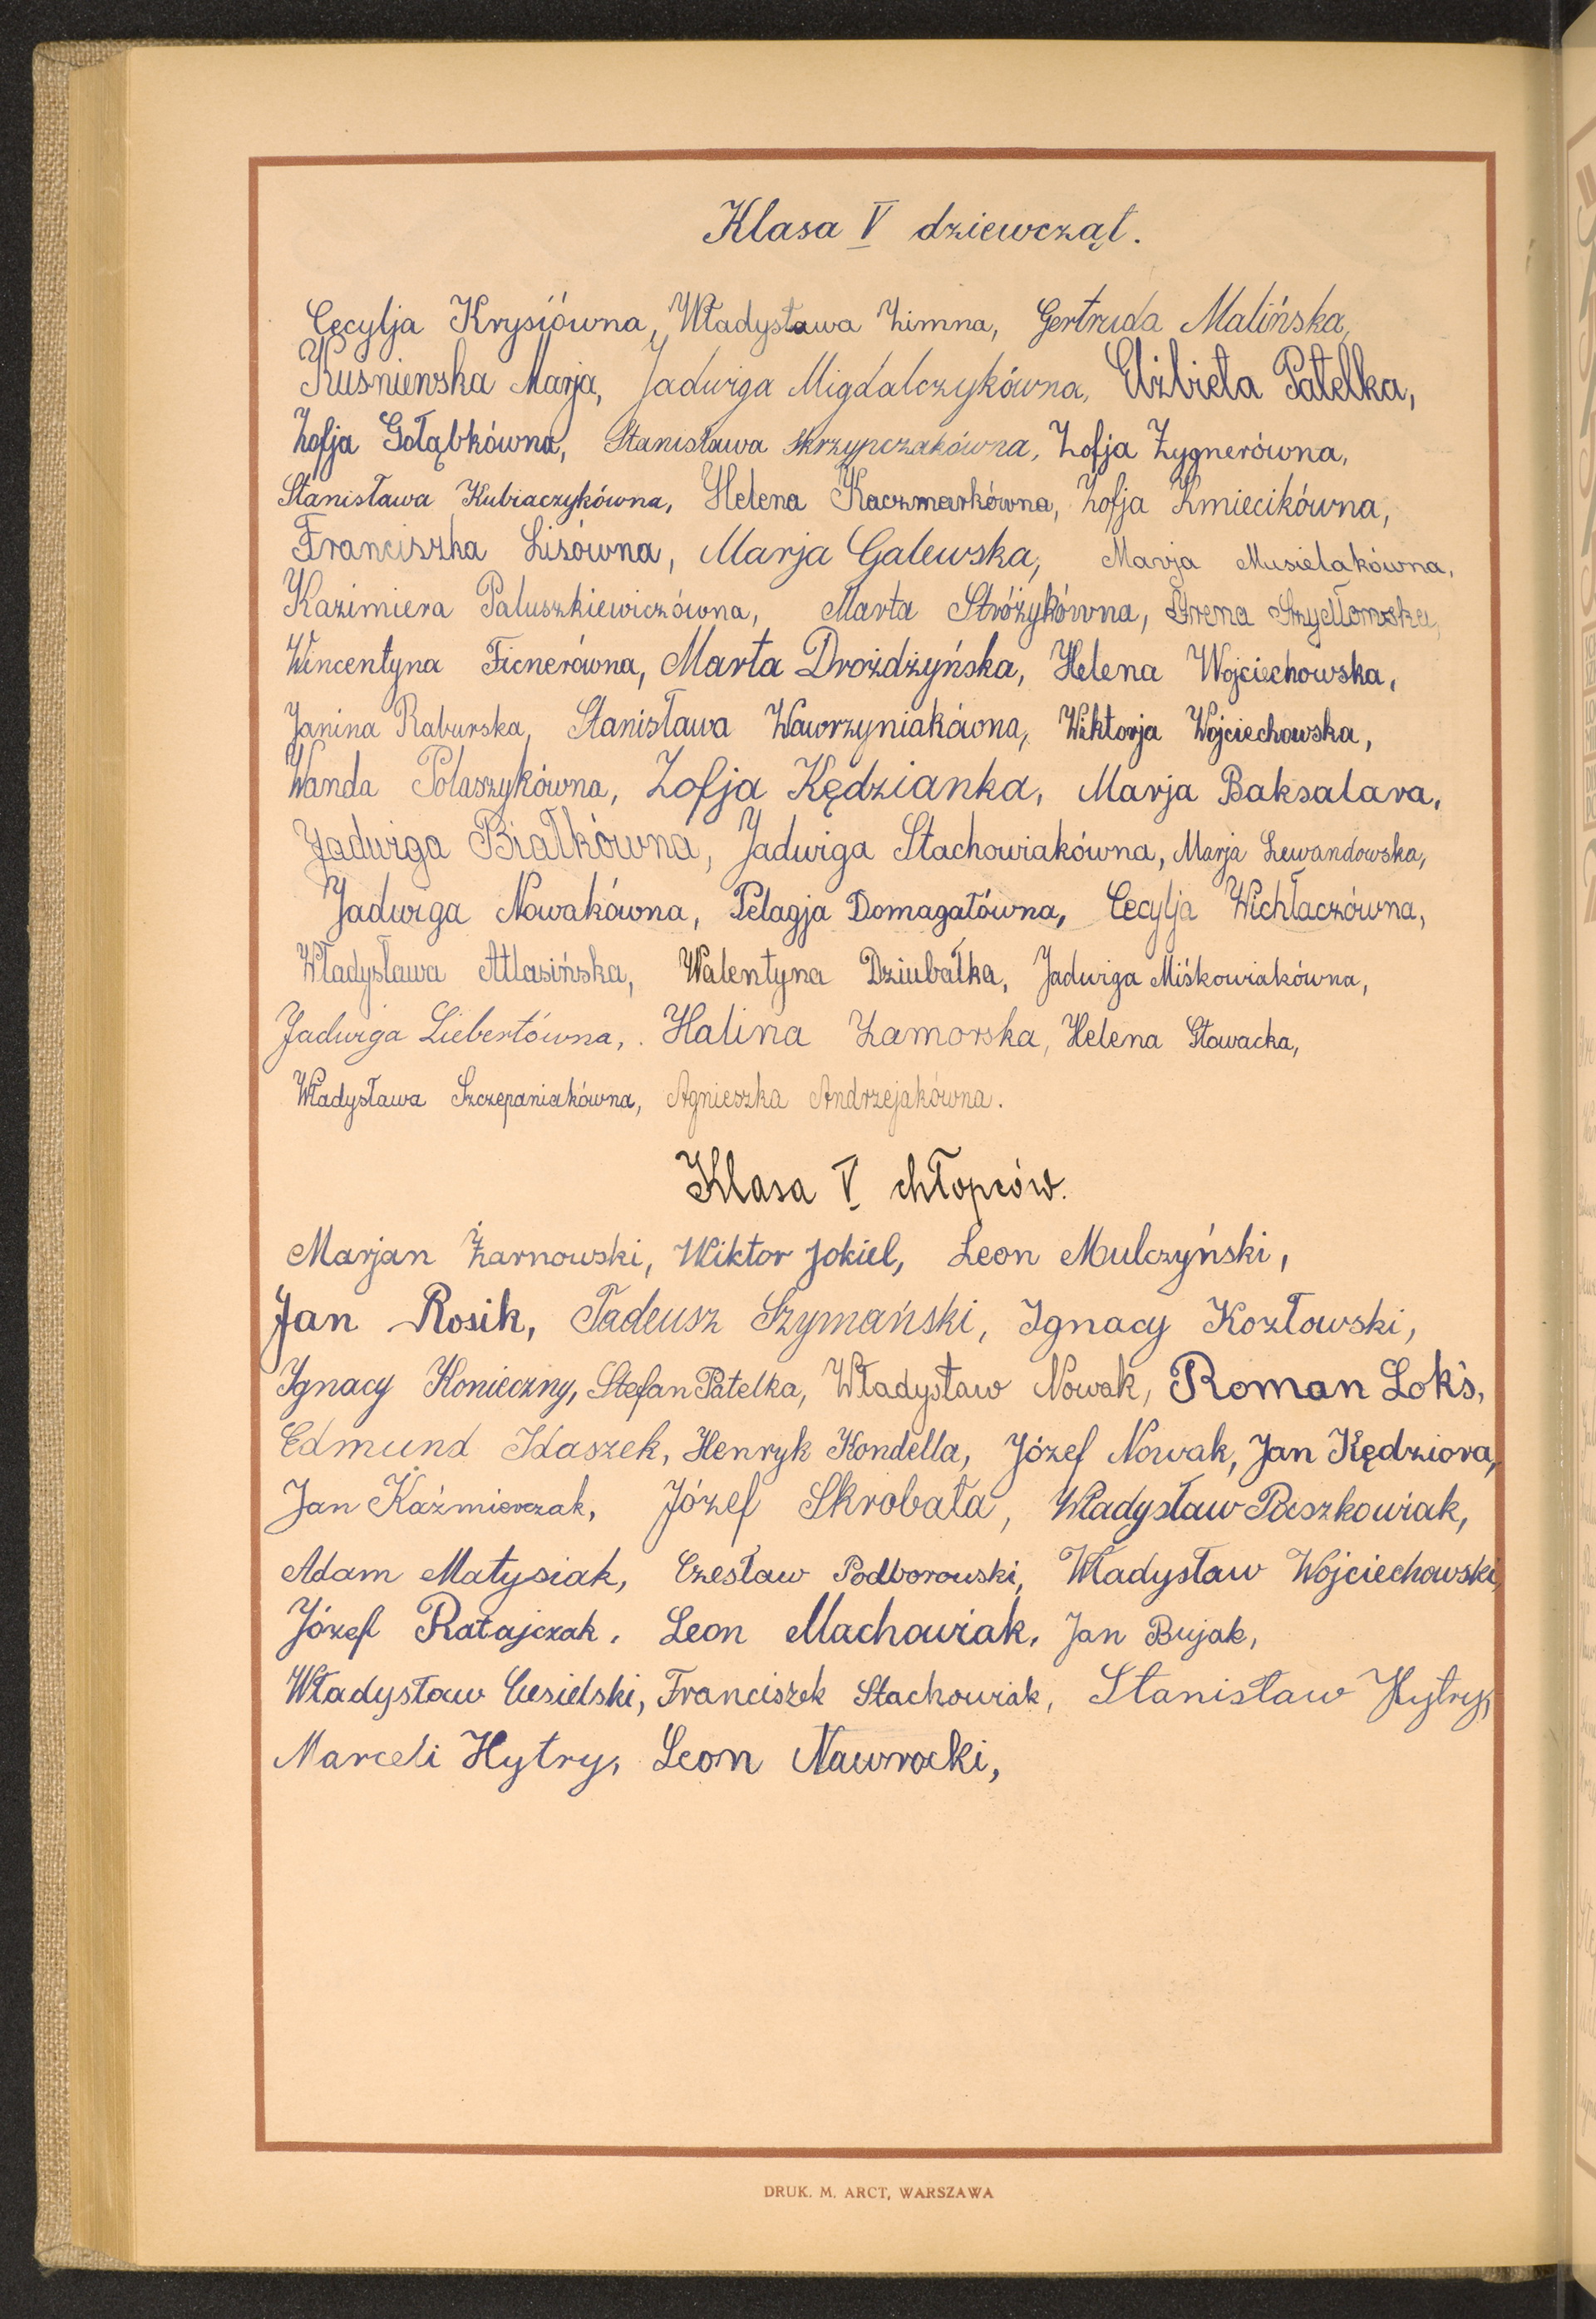 Klasa V dziewcząt.
Cecylja Krysiówna, Władysława Zimna, Gertruda Malińska,
Kuśniewska Marja, Jadwiga Migdalczykówna, Elżbieta Patelka,
Zofja Gołąbkówna, Stanisława Skrzypczakówna, Zofja Zygnerówna,
Stanisława Kubiaczykówna, Helena Kaczmarkówna, Zofja Kmiecikówna,
Franciszka Lisówna, Marja Galewska, Marja Musielakówna,
Kazimiera Paluszkiewiczówna, Marta Stróżykówna, Irena Szydłowska,
Wincentyna Ficnerówna, Marta Drożdżyńska, Helena Wojciechowska,
Janina Raburska, Stanisława Wawrzyniakówna, Wiktorja Wojciechowska,
Wanda Polaszykówna, Zofja Kędzianka, Marja Baksalara,
Jadwiga Białkówna, Jadwiga Stachowiakówna, Marja Lewandowska,
Jadwiga Nowakówna, Pelagja Domagałówna, Cecylja Wichłaczówna,
Władysława Atlasińska, Walentyna Dziubałka, Jadwiga Miśkowiakówna,
Jadwiga Liebertówna, Halina Zamorska, Helena Głowacka,
Władysława Szczepaniakówna, Agnieszka Andrzejakówna.
Klasa V chłopców.
Marjan Żarnowski, Wiktor Jokiel, Leon Mulczyński,
Jan Rosik, Tadeusz Szymański, Ignacy Kozłowski,
Ignacy Konieczny, Stefan Patelka, Władysław Nowak, Roman Loks,
Edmund Idaszek, Henryk Kondella, Józef Nowak, Jan Kędziora,
Jan Kaźmierczak, Józef Skrobała, Władysław Paszkowiak,
Adam Matysiak, Czesław Podborowski, Władysław Wojciechowski,
Józef Ratajczak, Leon Machowiak, Jan Bujak,
Władysław Ciesielski, Franciszek Stachowiak, Stanisław Hytry,
Marceli Hytry, Leon Nawrocki,
DRUK. M. ARCT, WARSZAWA